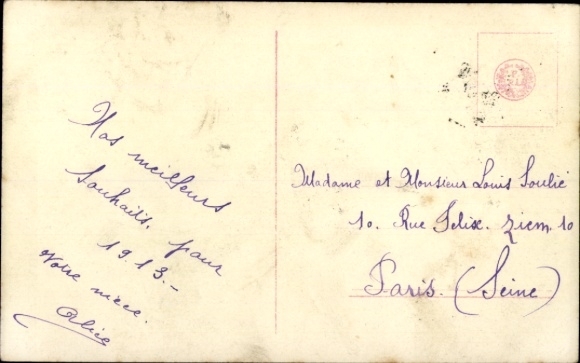 Nos meilleurs
Souhaits. pour
1913.-
Votre niece.
Alice
Madame et Monsieur Louis Soulié
10. Rue Felix. Ziem. 10
Paris. (Seine)